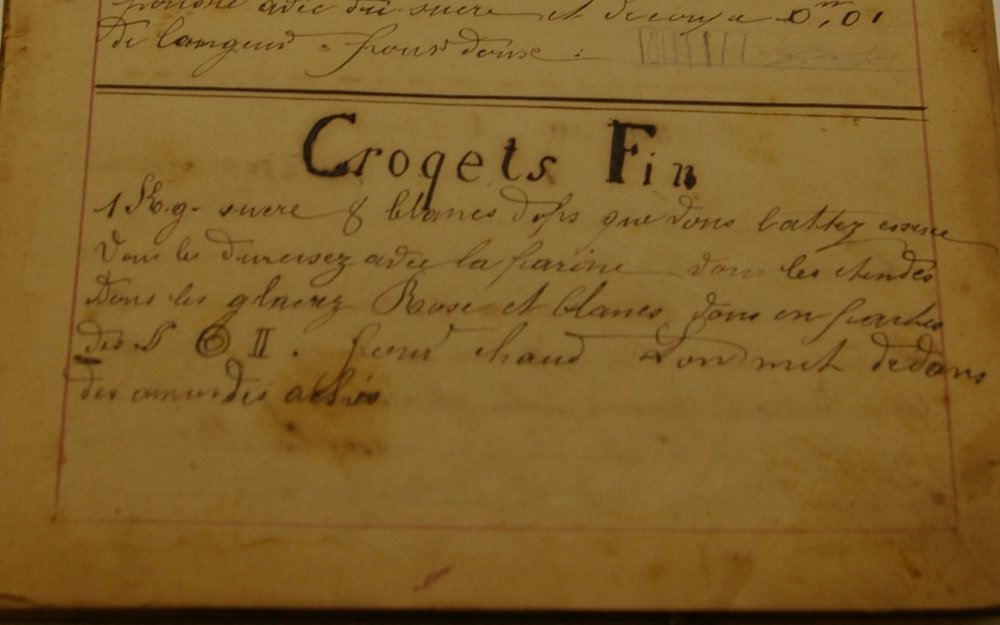 avec du sucre et decoupe 0,m01
de longeur. four doux :
Croqets Fin
1 K.g. sucre 8 blancs d'ofs que vous battez essence
vous les dureisez avec la farine vous les etendés
vous les glacez Rose et blancs, vous en faites
des S O II. four chaud L'on met dedans
des amandes achés